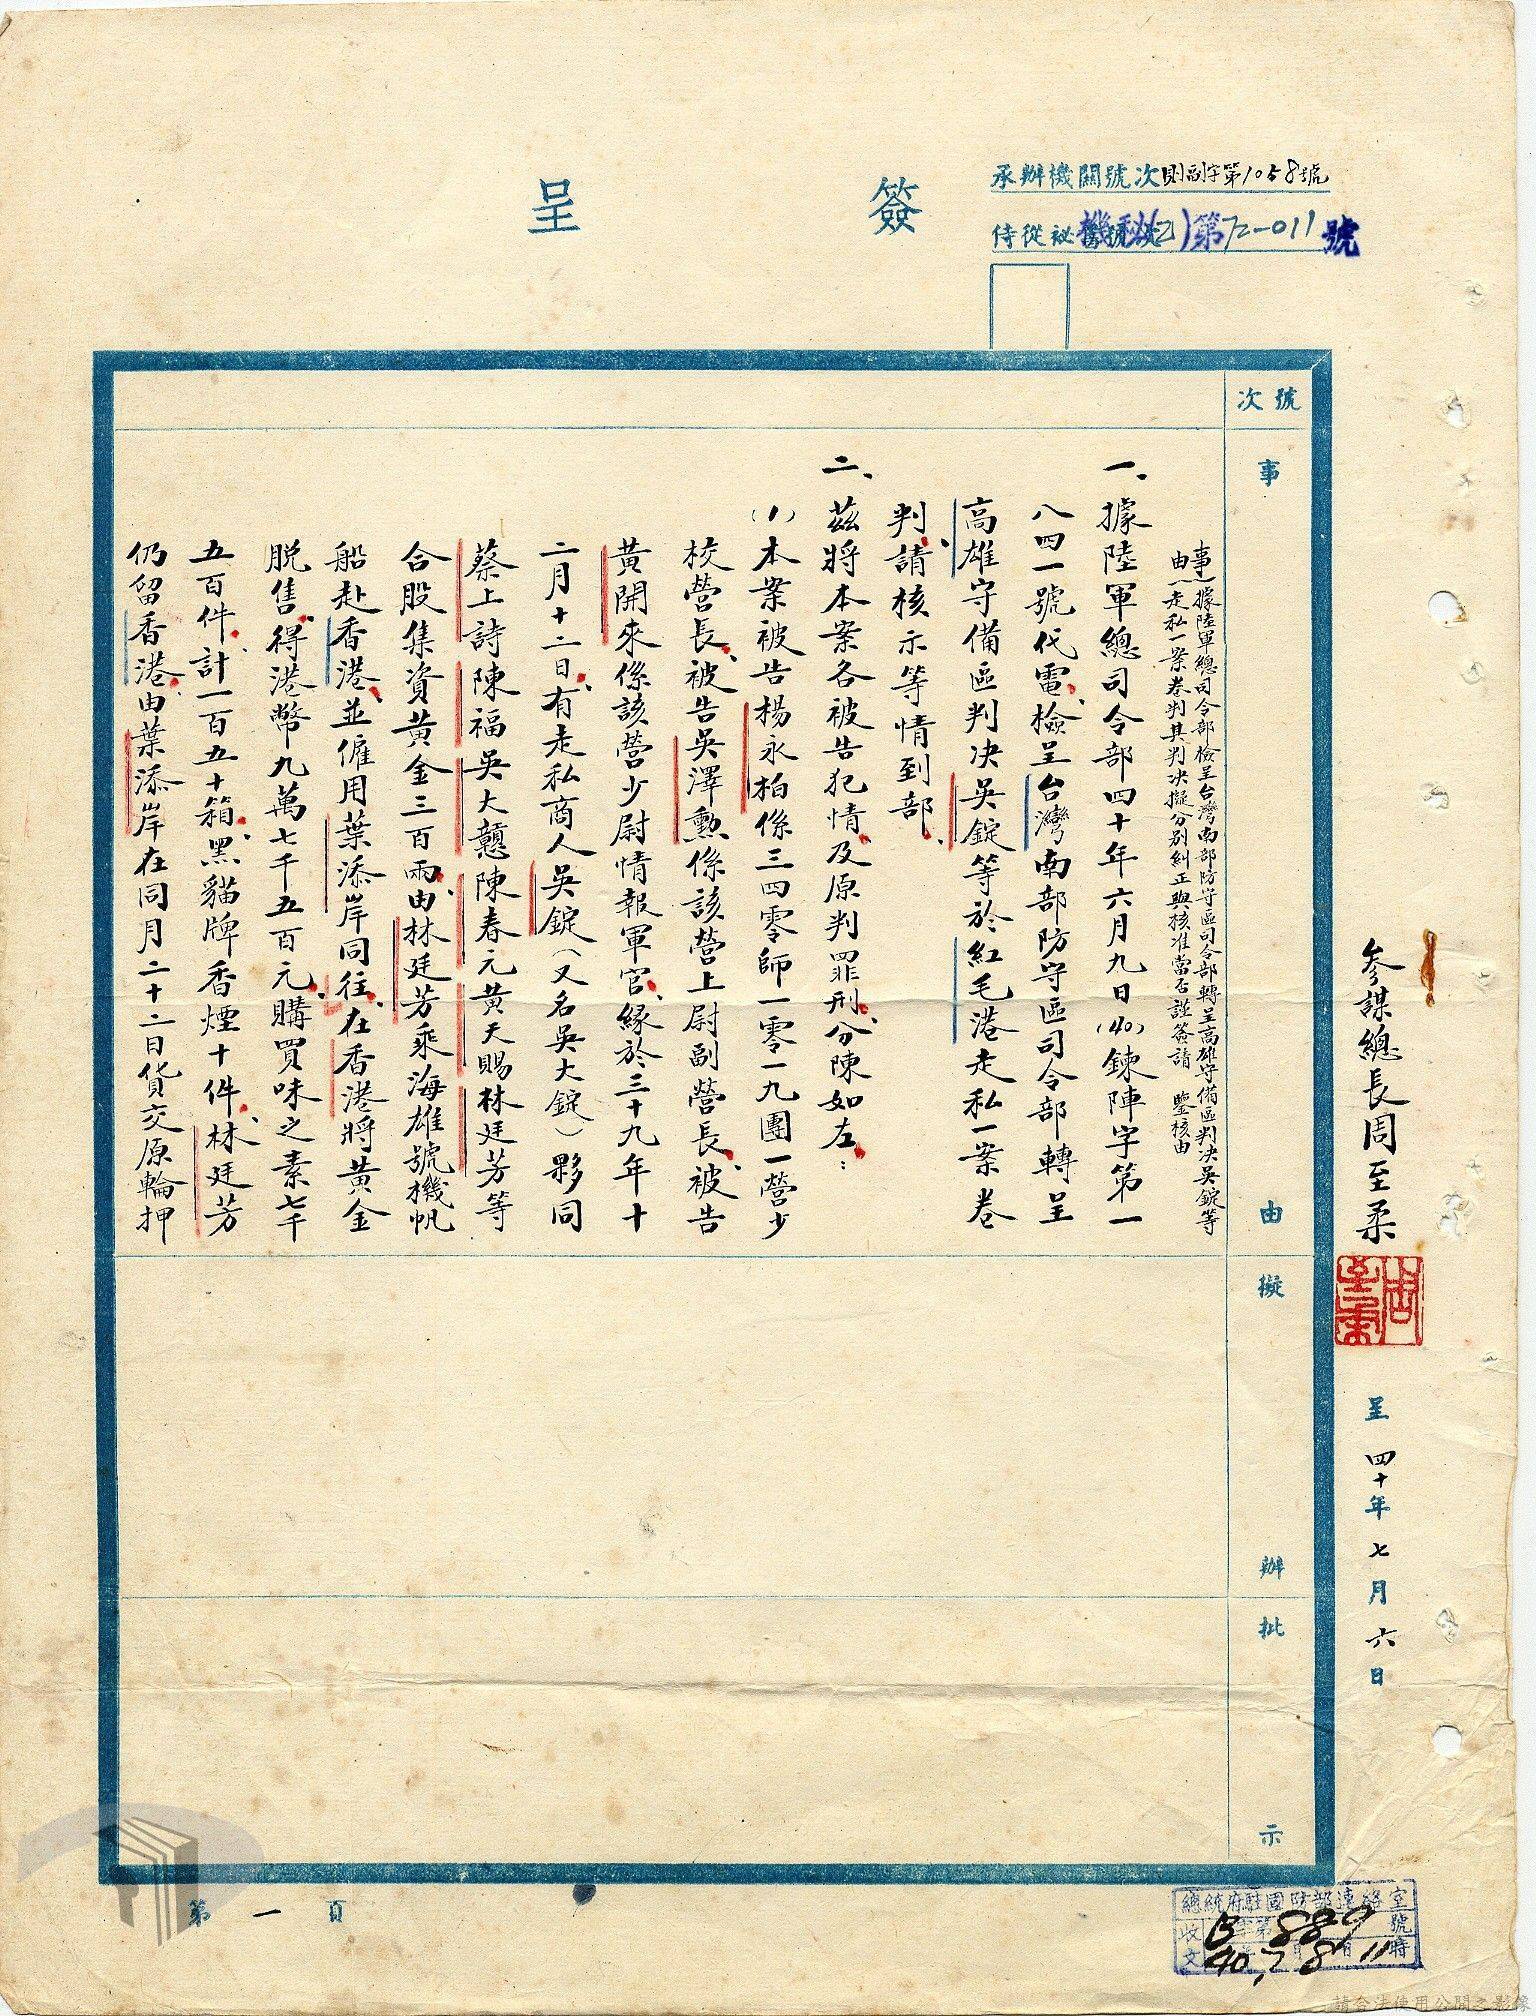 簽呈
承辦機關號次則副字第1058號
侍從祕書號次
機秘(乙)第72-011號
參謀總長周至柔
周至柔
呈 四十年七月六日
號次
事由
擬辦
批示
事由:據陸軍總司令部檢呈台灣南部防守區司令部轉呈高雄守備區判決吳錠等
走私一案卷判其判決擬分別糾正與核准當否謹簽請 鑒核由
一、據陸軍總司令部四十年六月九日(40)鍊陣字第一
八四一號代電、檢呈台灣南部防守區司令部轉呈
高雄守備區判決吳錠等於紅毛港走私一案卷
判、請核示等情到部、
二、茲將本案各被告犯情、及原判罪刑、分陳如左:
(1)本案被告楊永柏係三四零師一零一九團一營少
校營長、被告吳澤勳係該營上尉副營長、被告
黃開來係該營少尉情報軍官、緣於三十九年十
二月十二日、有走私商人吳錠(又名吳大錠)夥同
蔡上詩陳福吳大戇陳春元黃天賜林廷芳等
合股集資黃金三百兩、由林廷芳乘海雄號機帆
船赴香港、並僱用葉添岸同往、在香港將黃金
脱售、得港幣九萬七千五百元、購買味之素七千
五百件、計一百五十箱、黑貓牌香煙十件、林廷芳
仍留香港、由葉添岸在同月二十二日貨交原輪押
第一頁
總統府駐國防部連絡室
收文 B字第889號
40,7 8 11時
請合法使用公開之影像